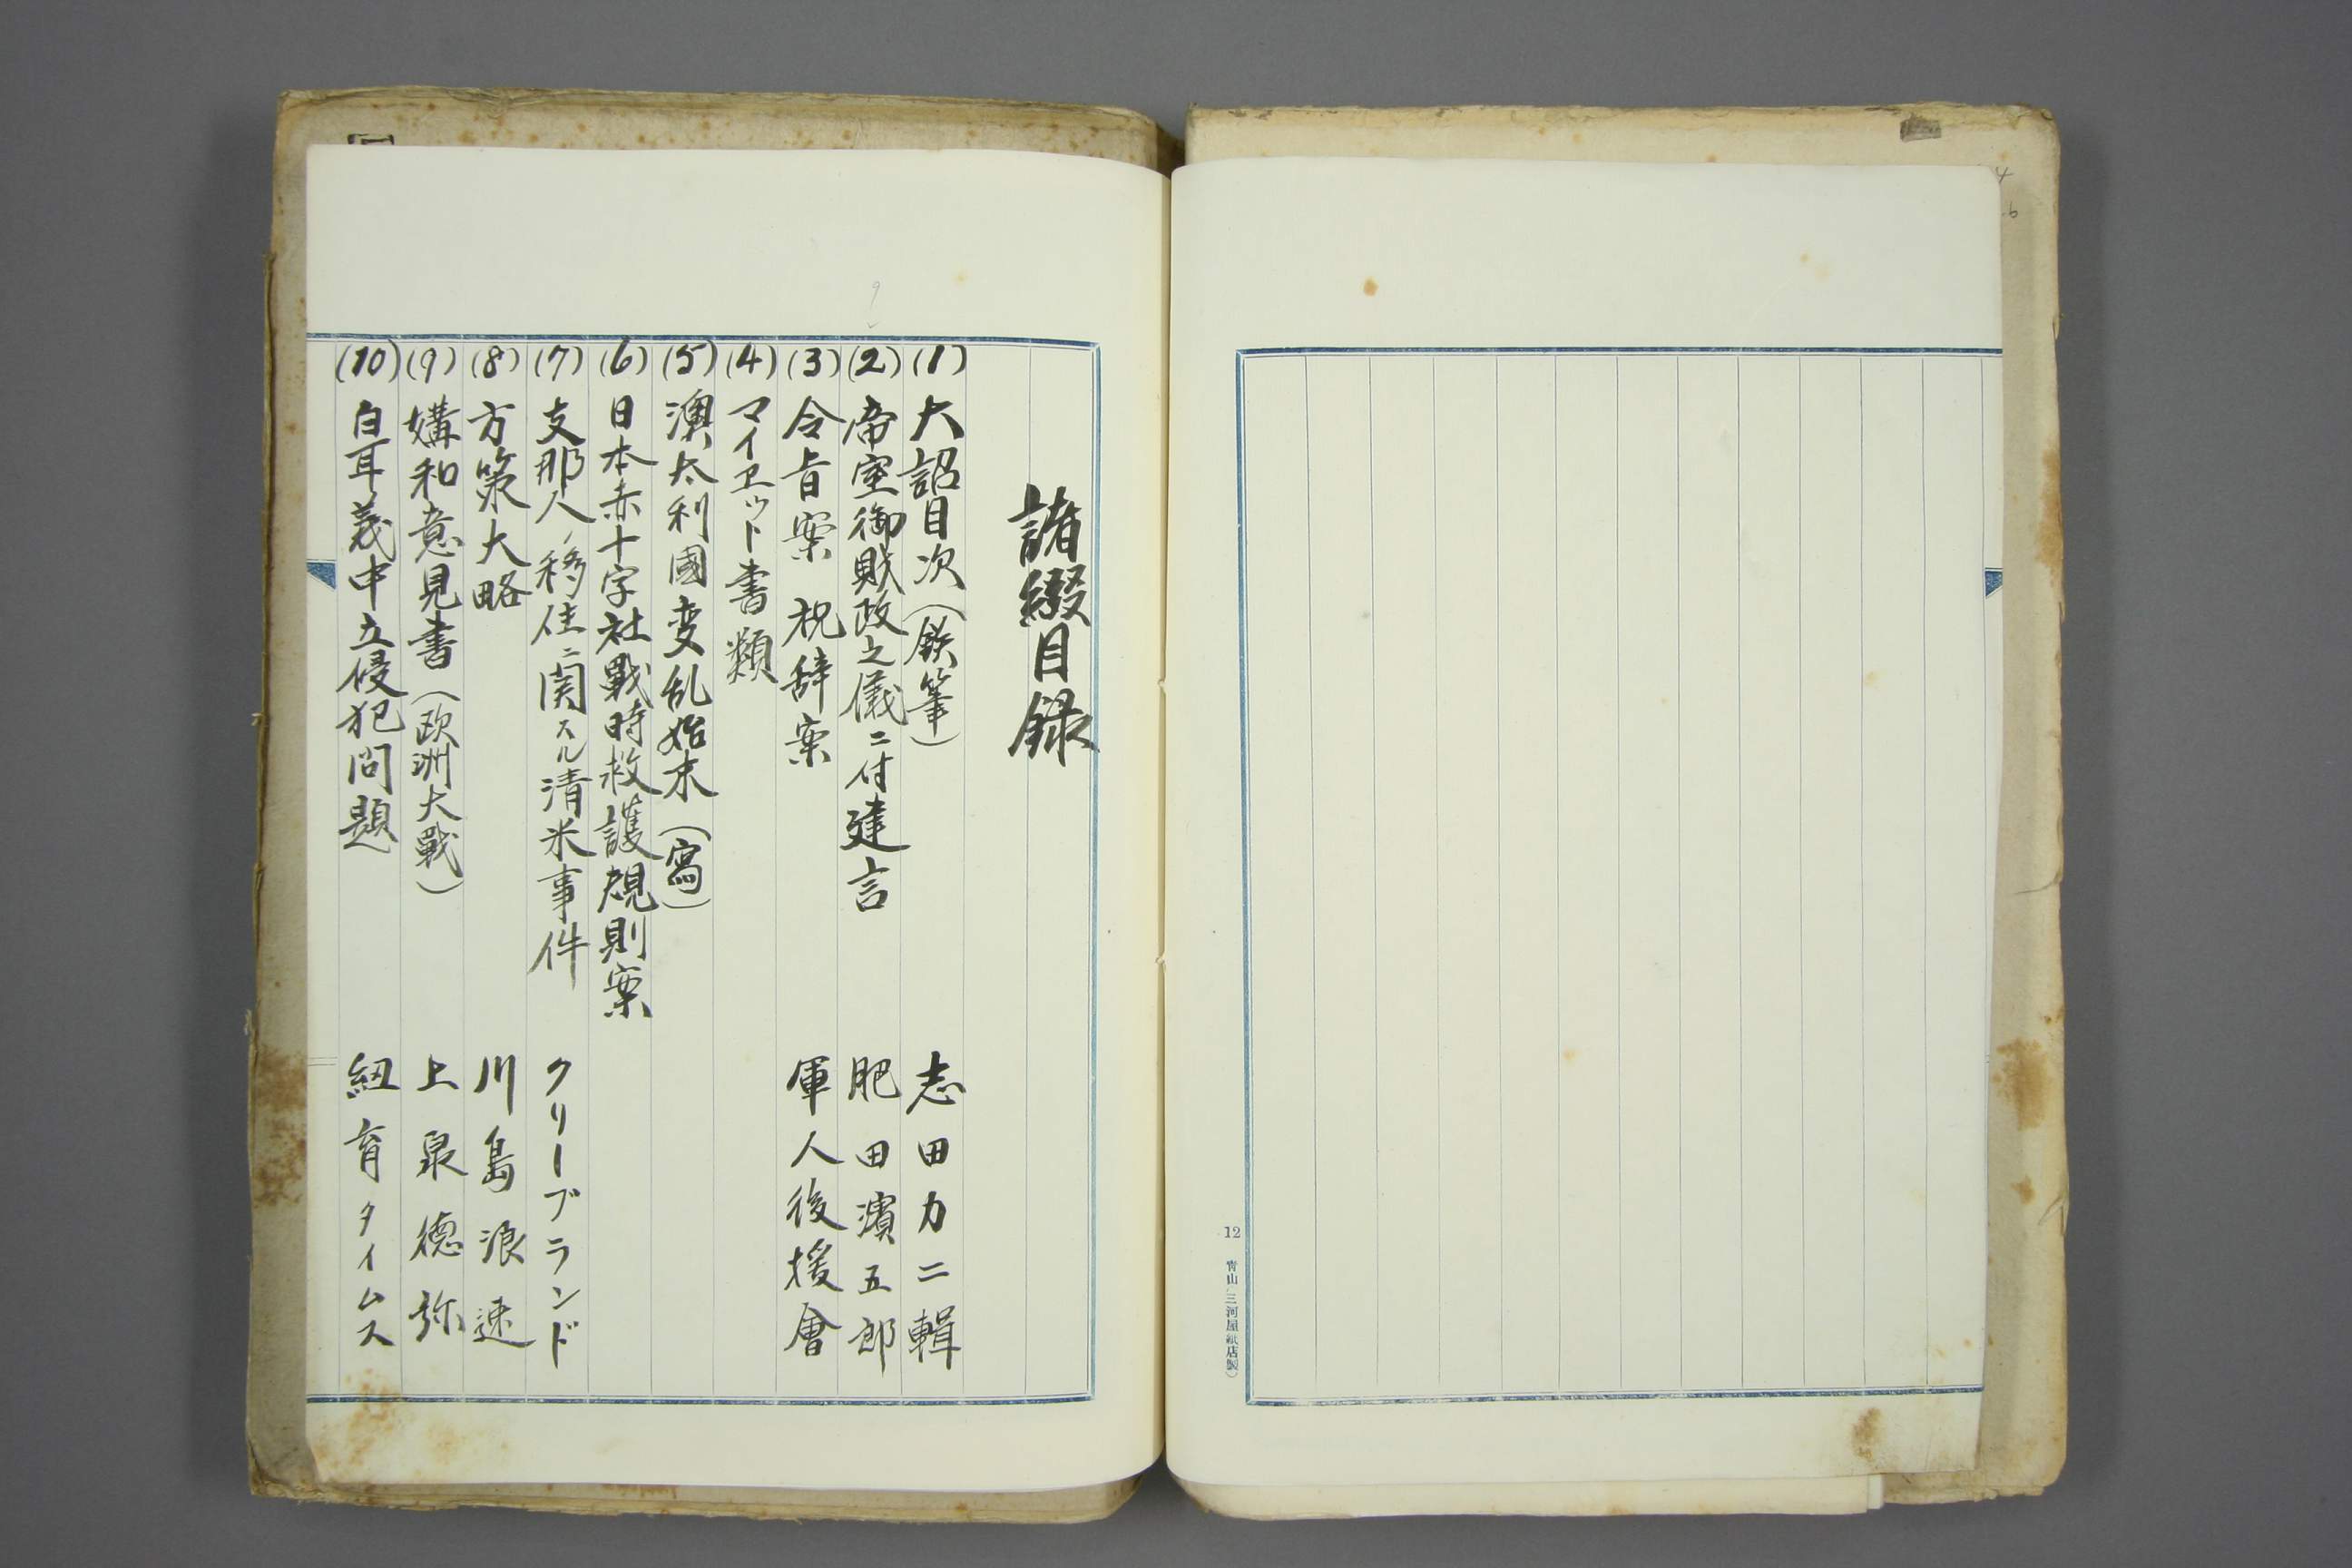 12 青山 三河屋紙店製)
諸綴目録
(1) 大詔目次(鉄筆) 志田力二輯
(2) 帝室御財政之儀ニ付建言 肥田濱五郎
(3) 令旨案 祝辞案 軍人後援會
(4) マイエット書類
(5) 澳太利國変乱始末(寫)
(6) 日本赤十字社戰時救護規則案
(7) 支那人ノ移住ニ関スル清米事件 クリーブランド
(8) 方策大略 川島浪速
(9) 媾和意見書(欧洲大戰) 上泉徳弥
(10) 白耳義中立侵犯問題 紐育タイムス